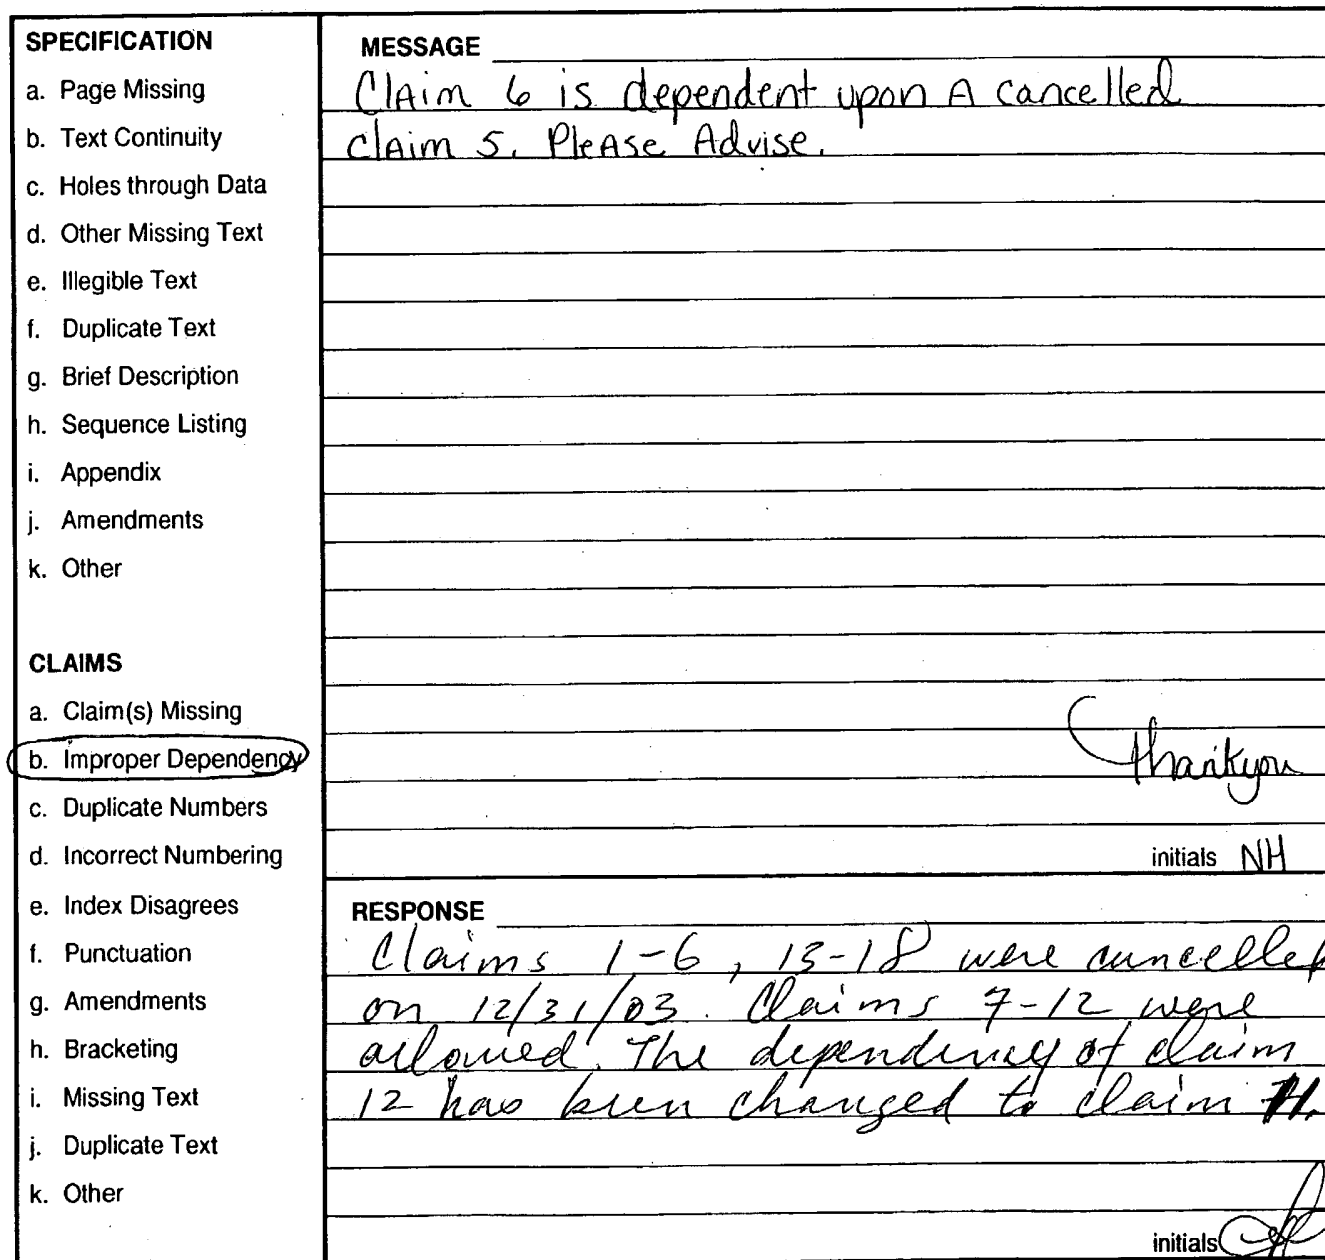 SPECIFICATION
a. Page Missing
b. Text Continuity
c. Holes through Data
d. Other Missing Text
e. Illegible Text
f. Duplicate Text
g. Brief Description
h. Sequence Listing
i. Appendix
j. Amendments
k. Other
CLAIMS
a. Claim(s) Missing
b. Improper Dependency
c. Duplicate Numbers
d. Incorrect Numbering
e. Index Disagrees
f. Punctuation
g. Amendments
h. Bracketing
i. Missing Text
j. Duplicate Text
k. Other
MESSAGE
Claim 6 is dependent upon A cancelled
claim 5. Please Advise.
Thankyou
initials NH
RESPONSE
Claims 1-6, 13-18 were cancelled
on 12/31/03. Claims 7-12 were
allowed. The dependency of claim
12 has been changed to claim 11.
initials